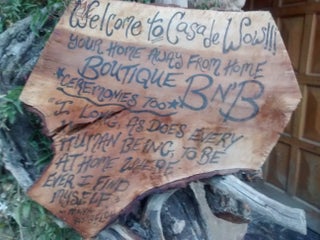 Welcome to Casa de Wow!!!
YOUR HOME AWAY FROM HOME
BOUTIQUE BNB
*CEREMONIES TOO*
"I LONG, AS DOES EVERY
HUMAN BEING, TO BE
AT HOME WHERE
EVER I FIND
MYSELF"